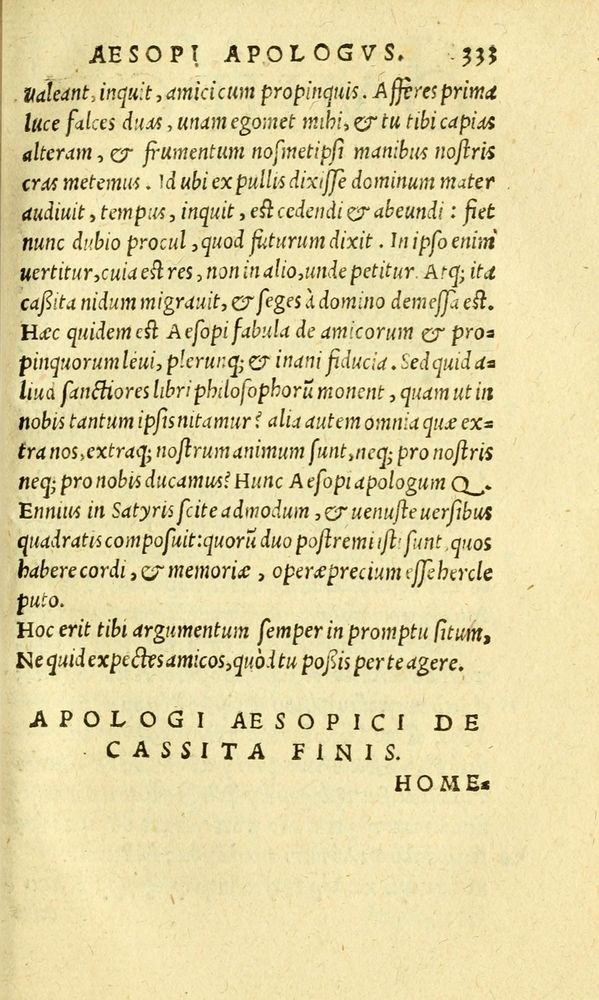 AESOPI APOLOGVS. 333
ualeant, inquit, amici cum propinquis. Afferes prima
luce falces duas, unam egomet mihi, & tu tibi capias
alteram, & frumentum noſmetipſi manibus noſtris
cras metemus. Id ubi ex pullis dixiſſe dominum mater
audiuit, tempus, inquit, eſt cedendi & abeundi: fiet
nunc dubio procul, quod futurum dixit. In ipſo enim
uertitur, cuia eſt res, non in alio, unde petitur. Atq; ita
caßita nidum migrauit, & ſeges à domino demeſſa eſt.
Hæc quidem eſt Aeſopi fabula de amicorum & pro-
pinquorum leui, plerunq; & inani fiducia. Sed quid a-
liud ſanctiores libri philoſophorũ monent, quam ut in
nobis tantum ipſis nitamur? alia autem omnia quæ ex-
tra nos, extraq; noſtrum animum ſunt, neq; pro noſtris
neq; pro nobis ducamus? Hunc Aeſopi apologum Q.
Ennius in Satyris ſcite admodum, & uenuſte uerſibus
quadratis compoſuit: quorũ duo poſtremi iſti ſunt, quos
habere cordi, & memoriæ, operæprecium eſſe hercle
puto.
Hoc erit tibi argumentum ſemper in promptu ſitum,
Ne quid expectes amicos, quòd tu poßis per te agere.
APOLOGI AESOPICI DE
CASSITA FINIS.
HOME-